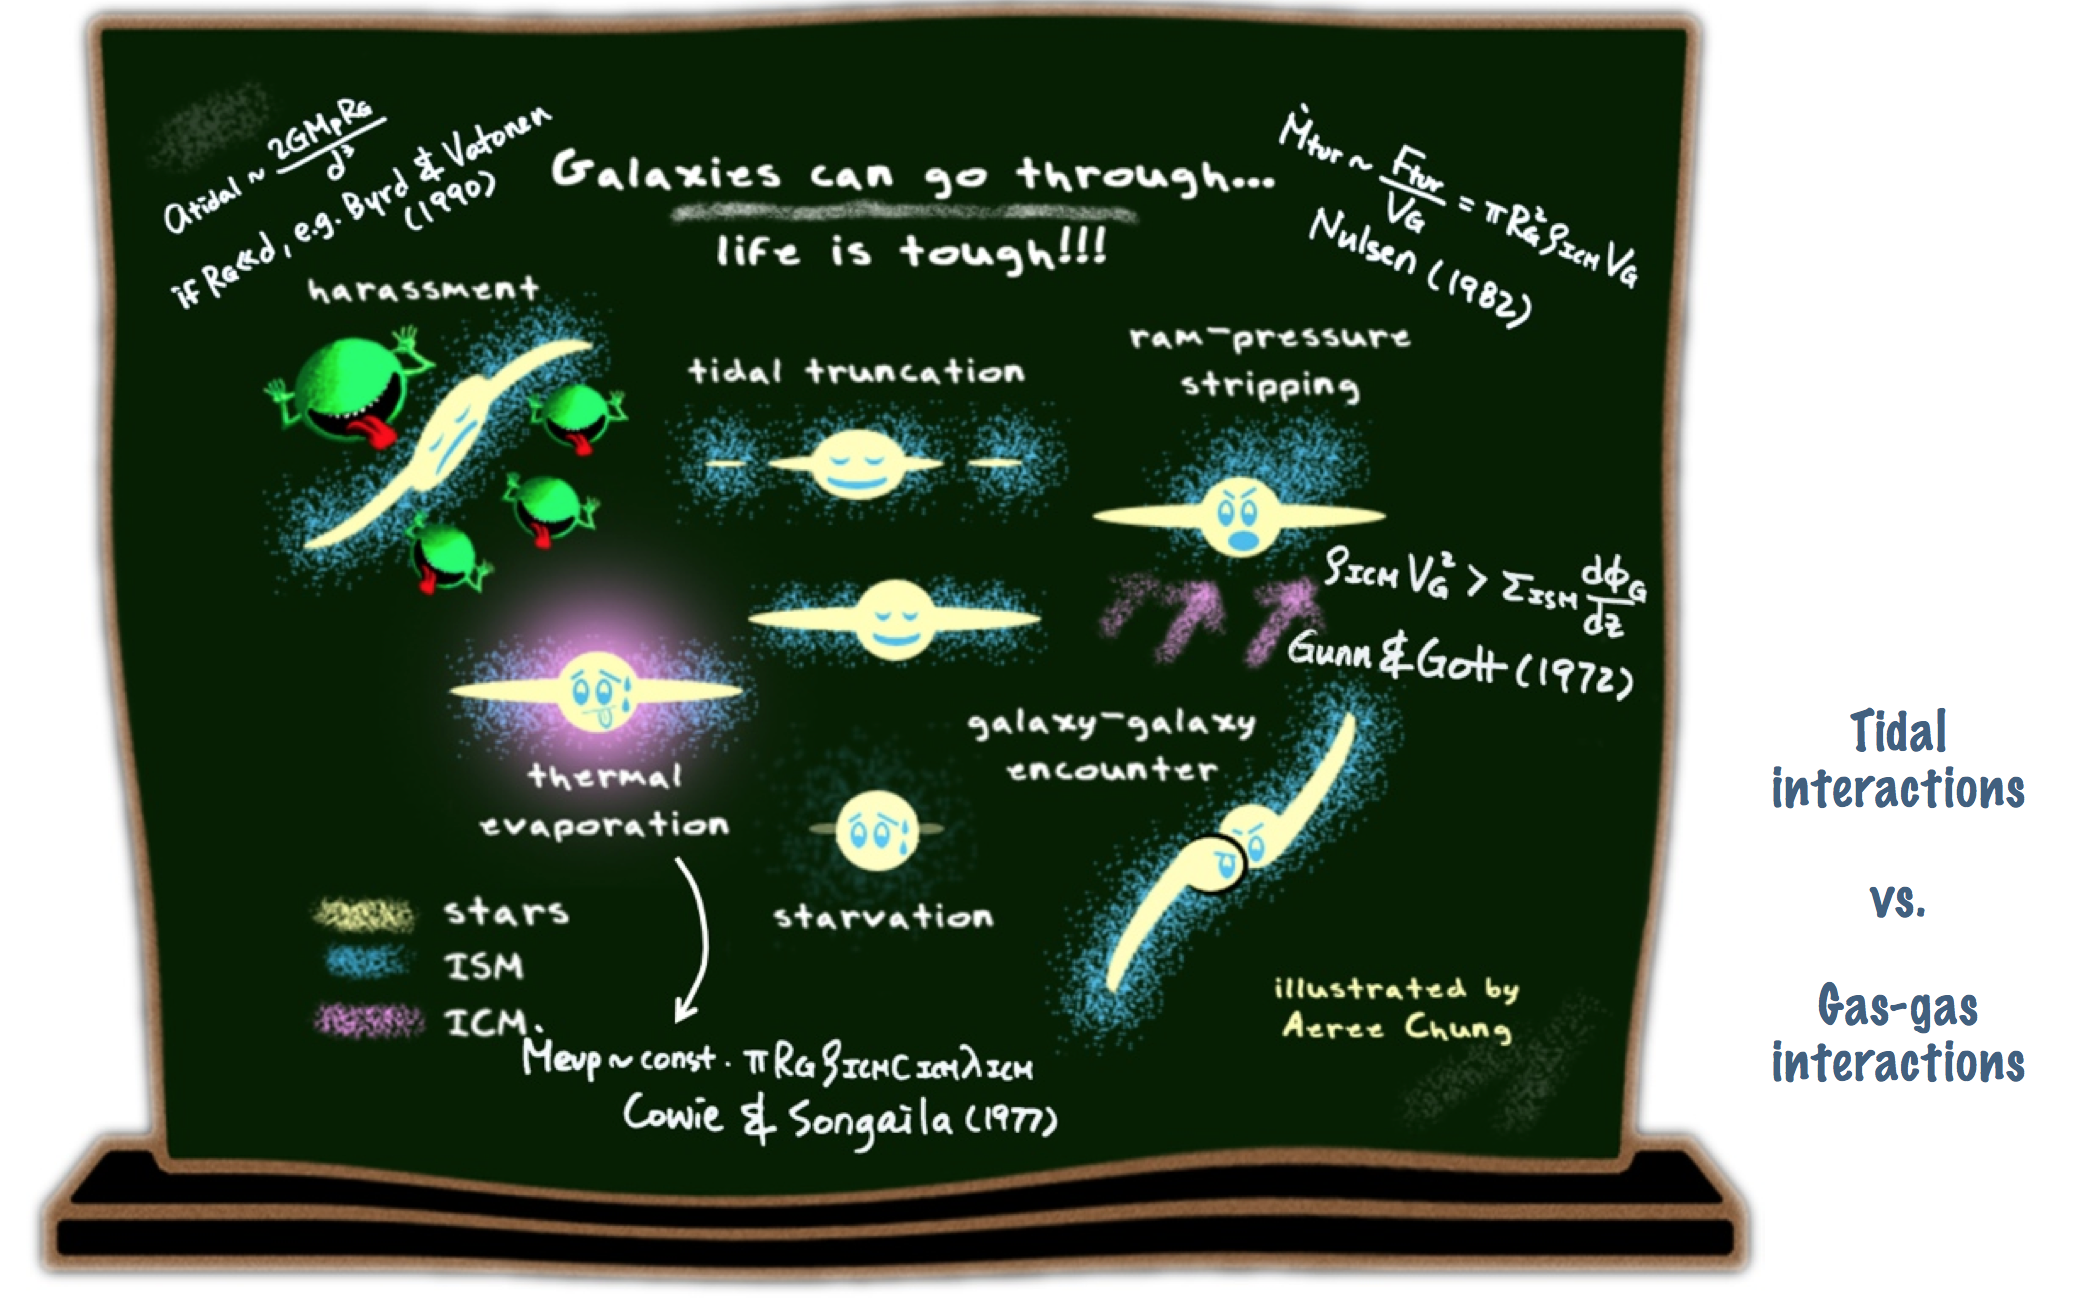 Galaxies can go through...
life is tough!!!
atidal ~ 2GMpRG / d³
if RG≪d, e.g. Byrd & Vatonen
(1990)
Ṁtur ~ Ftur / VG = πRG²ρICM VG
Nulsen (1982)
harassment
tidal truncation
ram-pressure
stripping
ρICM VG² > ΣISM dϕG / dz
Gunn & Gott (1972)
thermal
evaporation
galaxy-galaxy
encounter
starvation
stars
ISM
ICM
Ṁevp ~ const. πRG ρICM CICM λICM
Cowie & Songaila (1977)
illustrated by
Aeree Chung
Tidal
interactions
vs.
Gas-gas
interactions